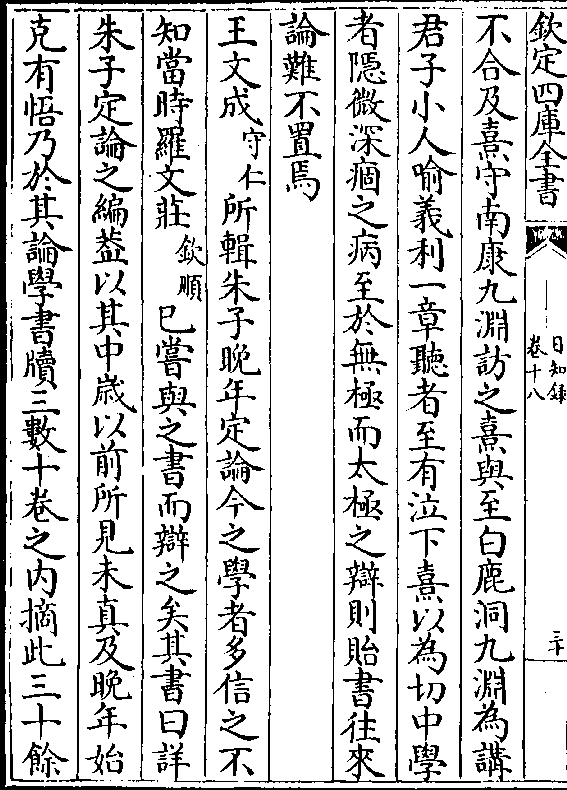 欽定四庫全書
日知錄
卷十八
三十
不合及熹守南康九淵訪之熹與至白鹿洞九淵為講
君子小人喻義利一章聽者至有泣下熹以為切中學
者隱微深痼之病至於無極而太極之辯則貽書往來
論難不置焉
王文成守仁所輯朱子晚年定論今之學者多信之不
知當時羅文莊欽順已嘗與之書而辯之矣其書曰詳
朱子定論之編葢以其中歳以前所見未真及晚年始
克有悟乃於其論學書牘三數十卷之内摘此三十餘